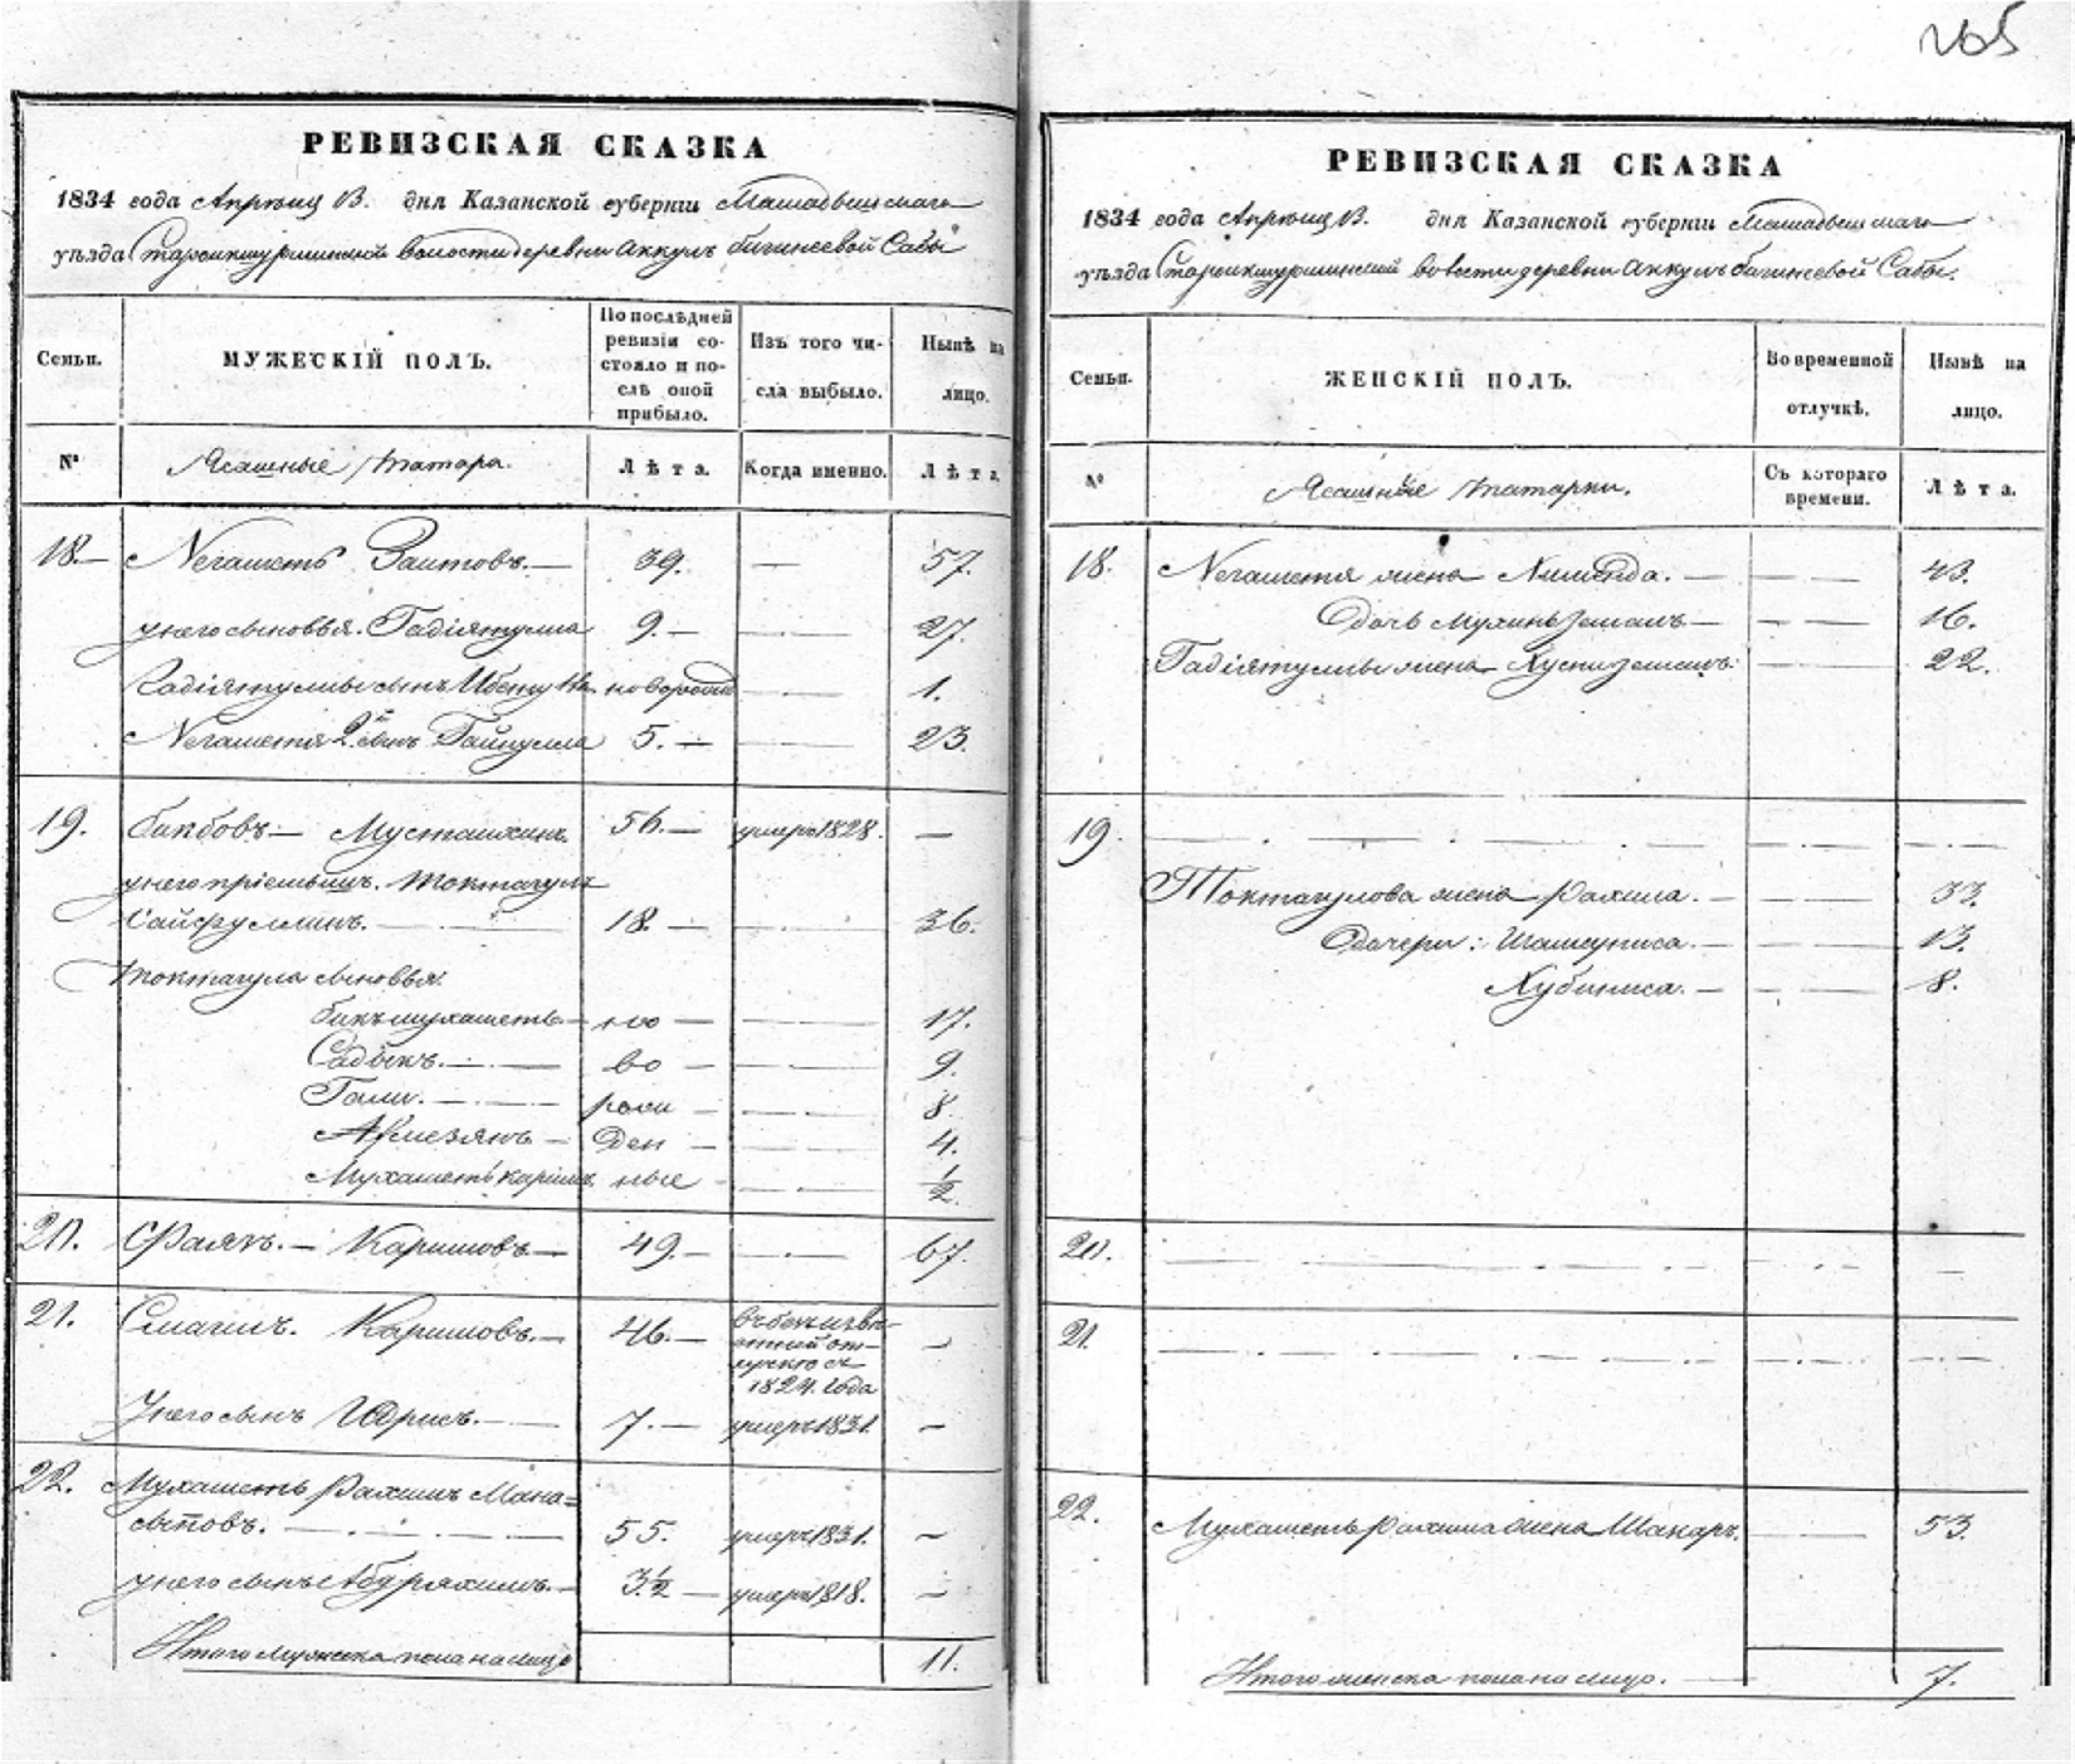 265
РЕВИЗСКАЯ СКАЗКА
1834 года Апреля 13. дня Казанской губернiи Мамадышскаго
уѣзда Староикшурминской волости деревни Аккулъ бигинеевой Сабы
Семьи.
МУЖЕСКIЙ ПОЛЪ.
По послѣдней ревизiи со-стояло и по-слѣ оной прибыло.
Изъ того чи-сла выбыло.
Нынѣ на лицо.
№
Ясашные татара.
Лѣта.
Когда именно.
Лѣта.
18. Негаметъ Заитовъ. 39. — 57.
у него сыновья. Гадiятулла 9. — 27.
Гадiятуллы сынъ новорожд — 1.
Негаметя 2й сынъ Гайнулла 5. — 23.
19. бикбовъ Мустакимъ. 56. умеръ 1828. —
у него прiемышъ. Токтагулъ
Сайфуллинъ. 18. — 36.
Токтагула сыновья:
бикъмухаметь. но — 17.
Садыкъ. во — 9.
Гали. рож — 8.
ден — 4.
Мухаметь каримъ ные — ½.
20. Фаякъ. Каримовъ 49. — 67.
21. Смагилъ. Каримовъ. 46. въ безъизвѣ-
стной от-
лучкѣ съ
1824. года —
У него сынъ Идрисъ. 7. умеръ 1831. —
22. Мухаметь рахимъ Мана=
сыповъ. 55. умеръ 1831. —
у него сынъ Абдряхимъ. 3½ умеръ 1818. —
Итого мужеска пола на лицо 11.
РЕВИЗСКАЯ СКАЗКА
1834 года Апреля 13. дня Казанской губернiи Мамадышскаго
уѣзда Староикшурминской волости деревни Аккулъ бигинеевой Сабы.
Семьи.
ЖЕНСКIЙ ПОЛЪ.
Во временной отлучкѣ.
Нынѣ на лицо.
№
Ясашныe татарки.
Съ котораго времени.
Лѣта.
18. Негаметя жена — 43.
дочь — 16.
Гадiятуллы жена Хуснизямалъ: — 22.
19. — — —
Токтагулова жена рахила. — 33.
Дочери: Шамсуниса. — 13.
Хубиниса. — 8.
20. — — —
21. — — —
22. Мухаметь рахима жена Шакаръ. — 53.
Итого женска пола на лицо. 7.